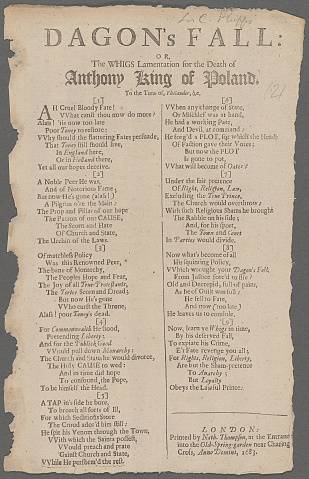 L. C. Phipps
DAGON's FALL:
OR,
The WHIGS Lamentation for the Death of
Anthony King of Poland.
To the Tune of, Philander, &c.
121
[1]
AH Cruel Bloody Fate!
VVhat canst thou now do more?
Alass! 'tis now too late
Poor Toney to restore:
VVhy should the flattering Fates perswade,
That Toney still should live,
In England here,
Or in Holland there,
Yet all our hopes deceive.
[2]
A Noble Peer He was,
And of Notorious Fame;
But now He's gone (alass!)
A Pilgrim o're the Main:
The Prop and Pillar of our hope
The Patron of our CAUSE,
The Scorn and Hate
Of Church and State,
The Urchin of the Laws.
[3]
Of matchless Policy
Was this Renowned Peer,
The bane of Monarchy,
The Peoples Hope and Fear,
The Joy of all True-Protestants,
The Tories Scorn and Dread:
But now He's gone
VVho curst the Throne,
Alass! poor Toney's dead.
[4]
For Commonwealth He stood,
Pretending Liberty;
And for the Publick Good
VVould pull down Monarchy:
The Church and State he would divorce,
The Holy CAUSE to wed:
And in time did hope
To confound the Pope,
To be himself the Head.
[5]
A TAP in's side he bore,
To broach all sorts of Ill,
For which Seditious Store
The Croud ador'd him still:
He spit his Venom through the Town,
VVith which the Saints possest,
VVould preach and prate
Gainst Church and State,
VVhile He perform'd the rest.
[6]
VVhen any change of State,
Or Mischief was at hand,
He had a working Pate,
And Devil at command:
He forg'd a PLOT, for which the Heads
Of Faction gave their Votes;
But now the PLOT
Is gone to pot,
VVhat will become of Oates?
[7]
Under the fair pretence
Of Right, Religion, Law,
Excluding the True Prince,
The Church would overthrow:
With such Religious Shams he brought
The Rabble on his side;
And, for his sport,
The Town and Court
In Parties would divide.
[8]
Now what's become of all
His squinting Policy,
VVhich wrought your Dagon's Fall,
From Justice forc'd to flie?
Old and Decrepid, full of pains,
As he of Guilt was full;
He fell to Fate,
And now (too late)
He leaves us to condole.
[9]
Now, learn ye Whigs in time,
By his deserved Fall,
To expiate his Crime,
E're Fate revenge you all;
For Rights, Religion, Liberty,
Are but the Sham-pretence
To Anarchy;
But Loyalty
Obeys the Lawful Prince.
LONDON:
Printed by Nath. Thompson, at the Entrance
into the Old-Spring-garden near Charing
Cross, Anno Domini, 1683.